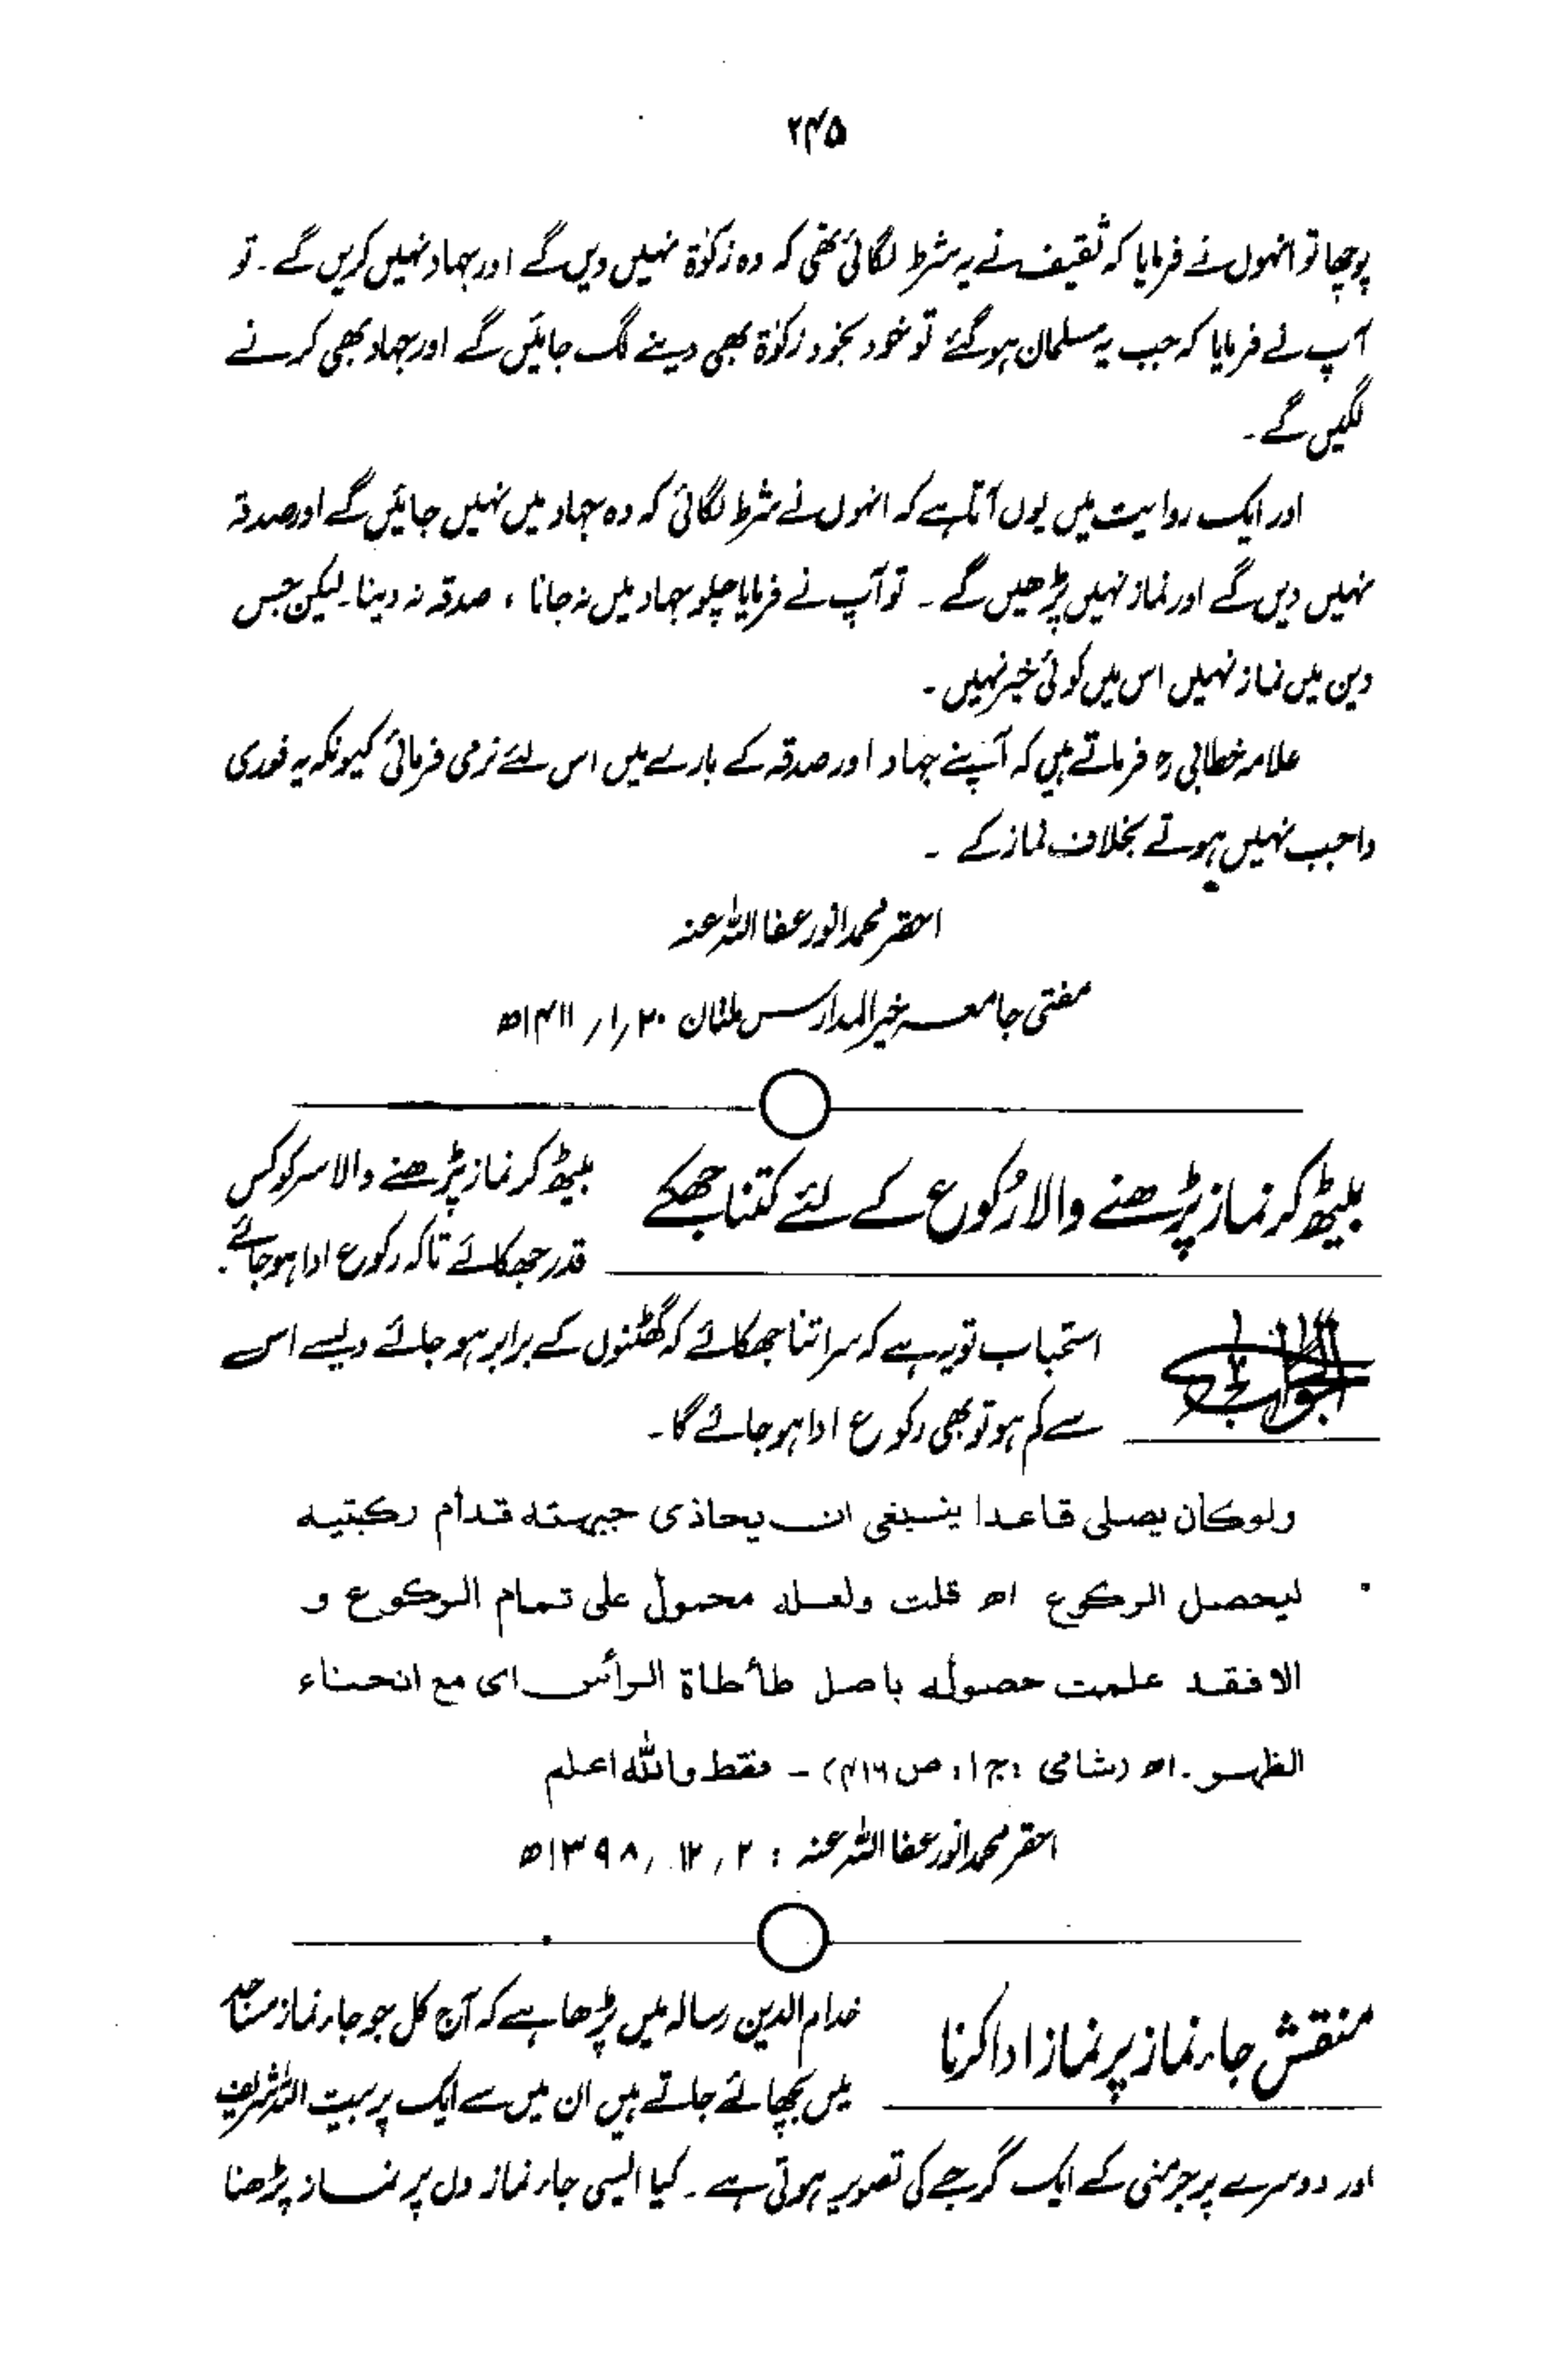 ۲۴۵
پوچھا تو انہوں نے فرمایا کہ ثقیف نے یہ شرط لگائی تھی کہ وہ زکوٰۃ نہیں دیں گے اور جہاد نہیں کریں گے ۔ تو
آپ نے فرمایا کہ جب یہ مسلمان ہو گئے تو خود بخود زکوٰۃ بھی دینے لگ جائیں گے اور جہاد بھی کرنے
لگیں گے ۔
اور ایک روایت میں یوں آتا ہے کہ انہوں نے شرط لگائی کہ وہ جہاد میں نہیں جائیں گے اور صدقہ
نہیں دیں گے اور نماز نہیں پڑھیں گے ۔ تو آپ نے فرمایا چلو جہاد میں نہ جانا ، صدقہ نہ دینا ۔ لیکن جس
دین میں نماز نہیں اس میں کوئی خیر نہیں ۔
علامہ خطابی رہ فرماتے ہیں کہ آپ نے جہاد اور صدقہ کے بارے میں اس لئے نرمی فرمائی کیونکہ یہ فوری
واجب نہیں ہوتے بخلاف نماز کے ۔
احقر محمد انور عفا اللہ عنہ
مفتی جامعہ خیر المدارس ملتان ۲۰ / ۱ / ۱۴۱۱ھ
بیٹھ کر نماز پڑھنے والا رُکوع کے لئے کتنا جھکے
بیٹھ کر نماز پڑھنے والا سر کو کس
قدر جھکائے تاکہ رکوع ادا ہو جائے ۔
الجواب
استحباب تو یہ ہے کہ سر اتنا جھکائے کہ گھٹنوں کے برابر ہو جائے ویسے اس
سے کم ہو تو بھی رکوع ادا ہو جائے گا ۔
ولو کان یصلی قاعدا ینبغی ان یحاذی جبهته قدام رکبتیه
لیحصل الرکوع اھ قلت ولعله محمول علی تمام الرکوع و
الا فقد علمت حصوله باصل طأطاة الرأس ای مع انحناء
الظهر ۔ اھ (شامی : ج۱ : ص ۴۱۶) ۔ فقط واللہ اعلم
احقر محمد انور عفا اللہ عنہ : ۲ / ۱۲ / ۱۳۹۸ھ
منقش جاءنماز پر نماز ادا کرنا
خدام الدین رسالہ میں پڑھا ہے کہ آج کل جو جاءنماز مساجد
میں بچھائے جاتے ہیں ان میں سے ایک پر بیت اللہ شریف
اور دوسرے پر جرمنی کے ایک گرجے کی تصویر ہوتی ہے ۔ کیا ایسی جاءنمازوں پر نماز پڑھنا